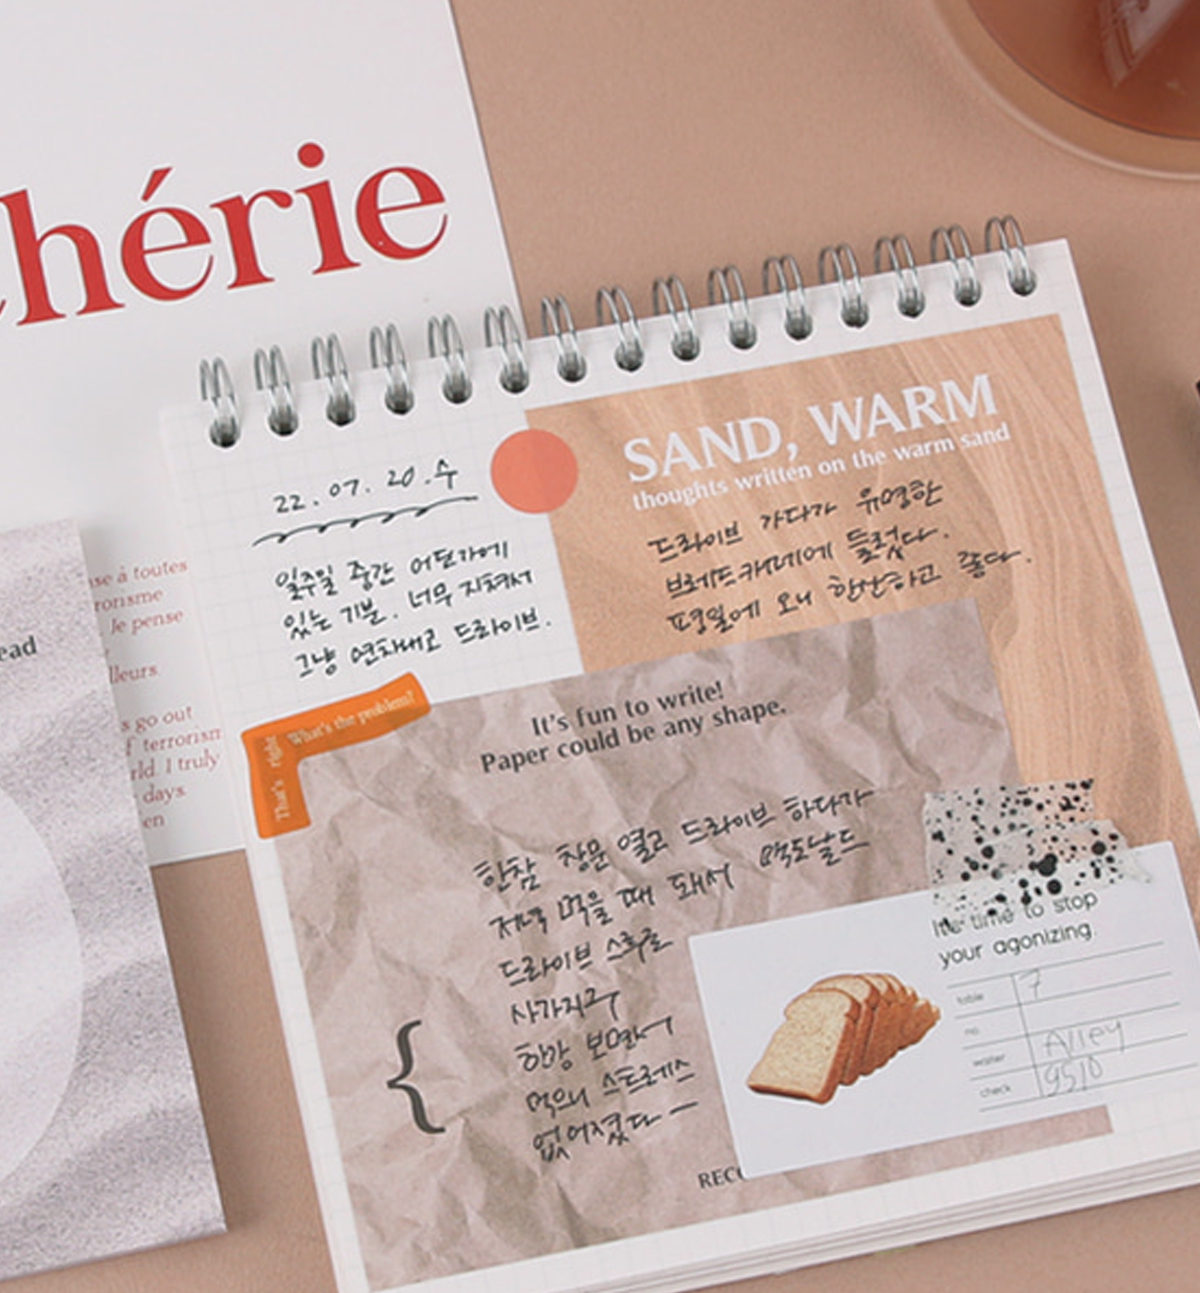 chérie
se à toutes
rorisme
Je pense
lleurs
s go out
f terrorism
rld. I truly
days
en
ead
22.07.20.수
일주일 중간 어딘가에
있는 기분. 너무 지쳐서
그냥 연차내고 드라이브.
SAND, WARM
thoughts written on the warm sand
드라이브 가다가 유명한
브레드카페에 들렀다.
평일에 오니 한산하고 좋다.
What's the problem?
That's right
It's fun to write!
Paper could be any shape.
한참 창문 열고 드라이브 하다가
저녁 먹을 때 돼서 맥도날드
드라이브 스루로
사가지구
한강 보면서
먹으니 스트레스
없어졌다 —
{
It's time to stop
your agonizing
table 7
no.
waiter Alley
check 9510
RECO